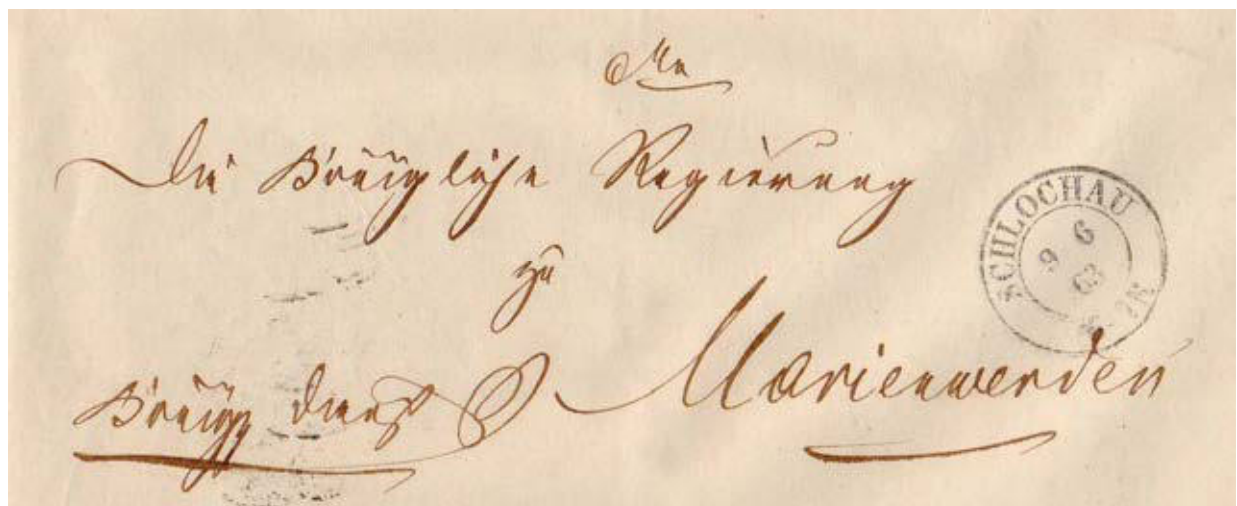 An
Die Königliche Regierung
zu
Marienwerder
Königl Dienst S
SCHLOCHAU
9 6
63